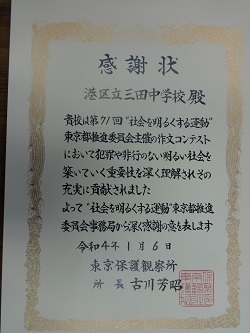 感謝状
港区立三田中学校 殿
貴校は第71回“社会を明るくする運動”
東京都推進委員会主催の作文コンテスト
において犯罪や非行のない明るい社会を
築いていく重要性を深く理解されその
充実に貢献されました
よって“社会を明るくする運動”東京都推進
委員会事務局から深く感謝の意を表します
令和4年1月6日
東京保護観察所
所長 古川芳昭